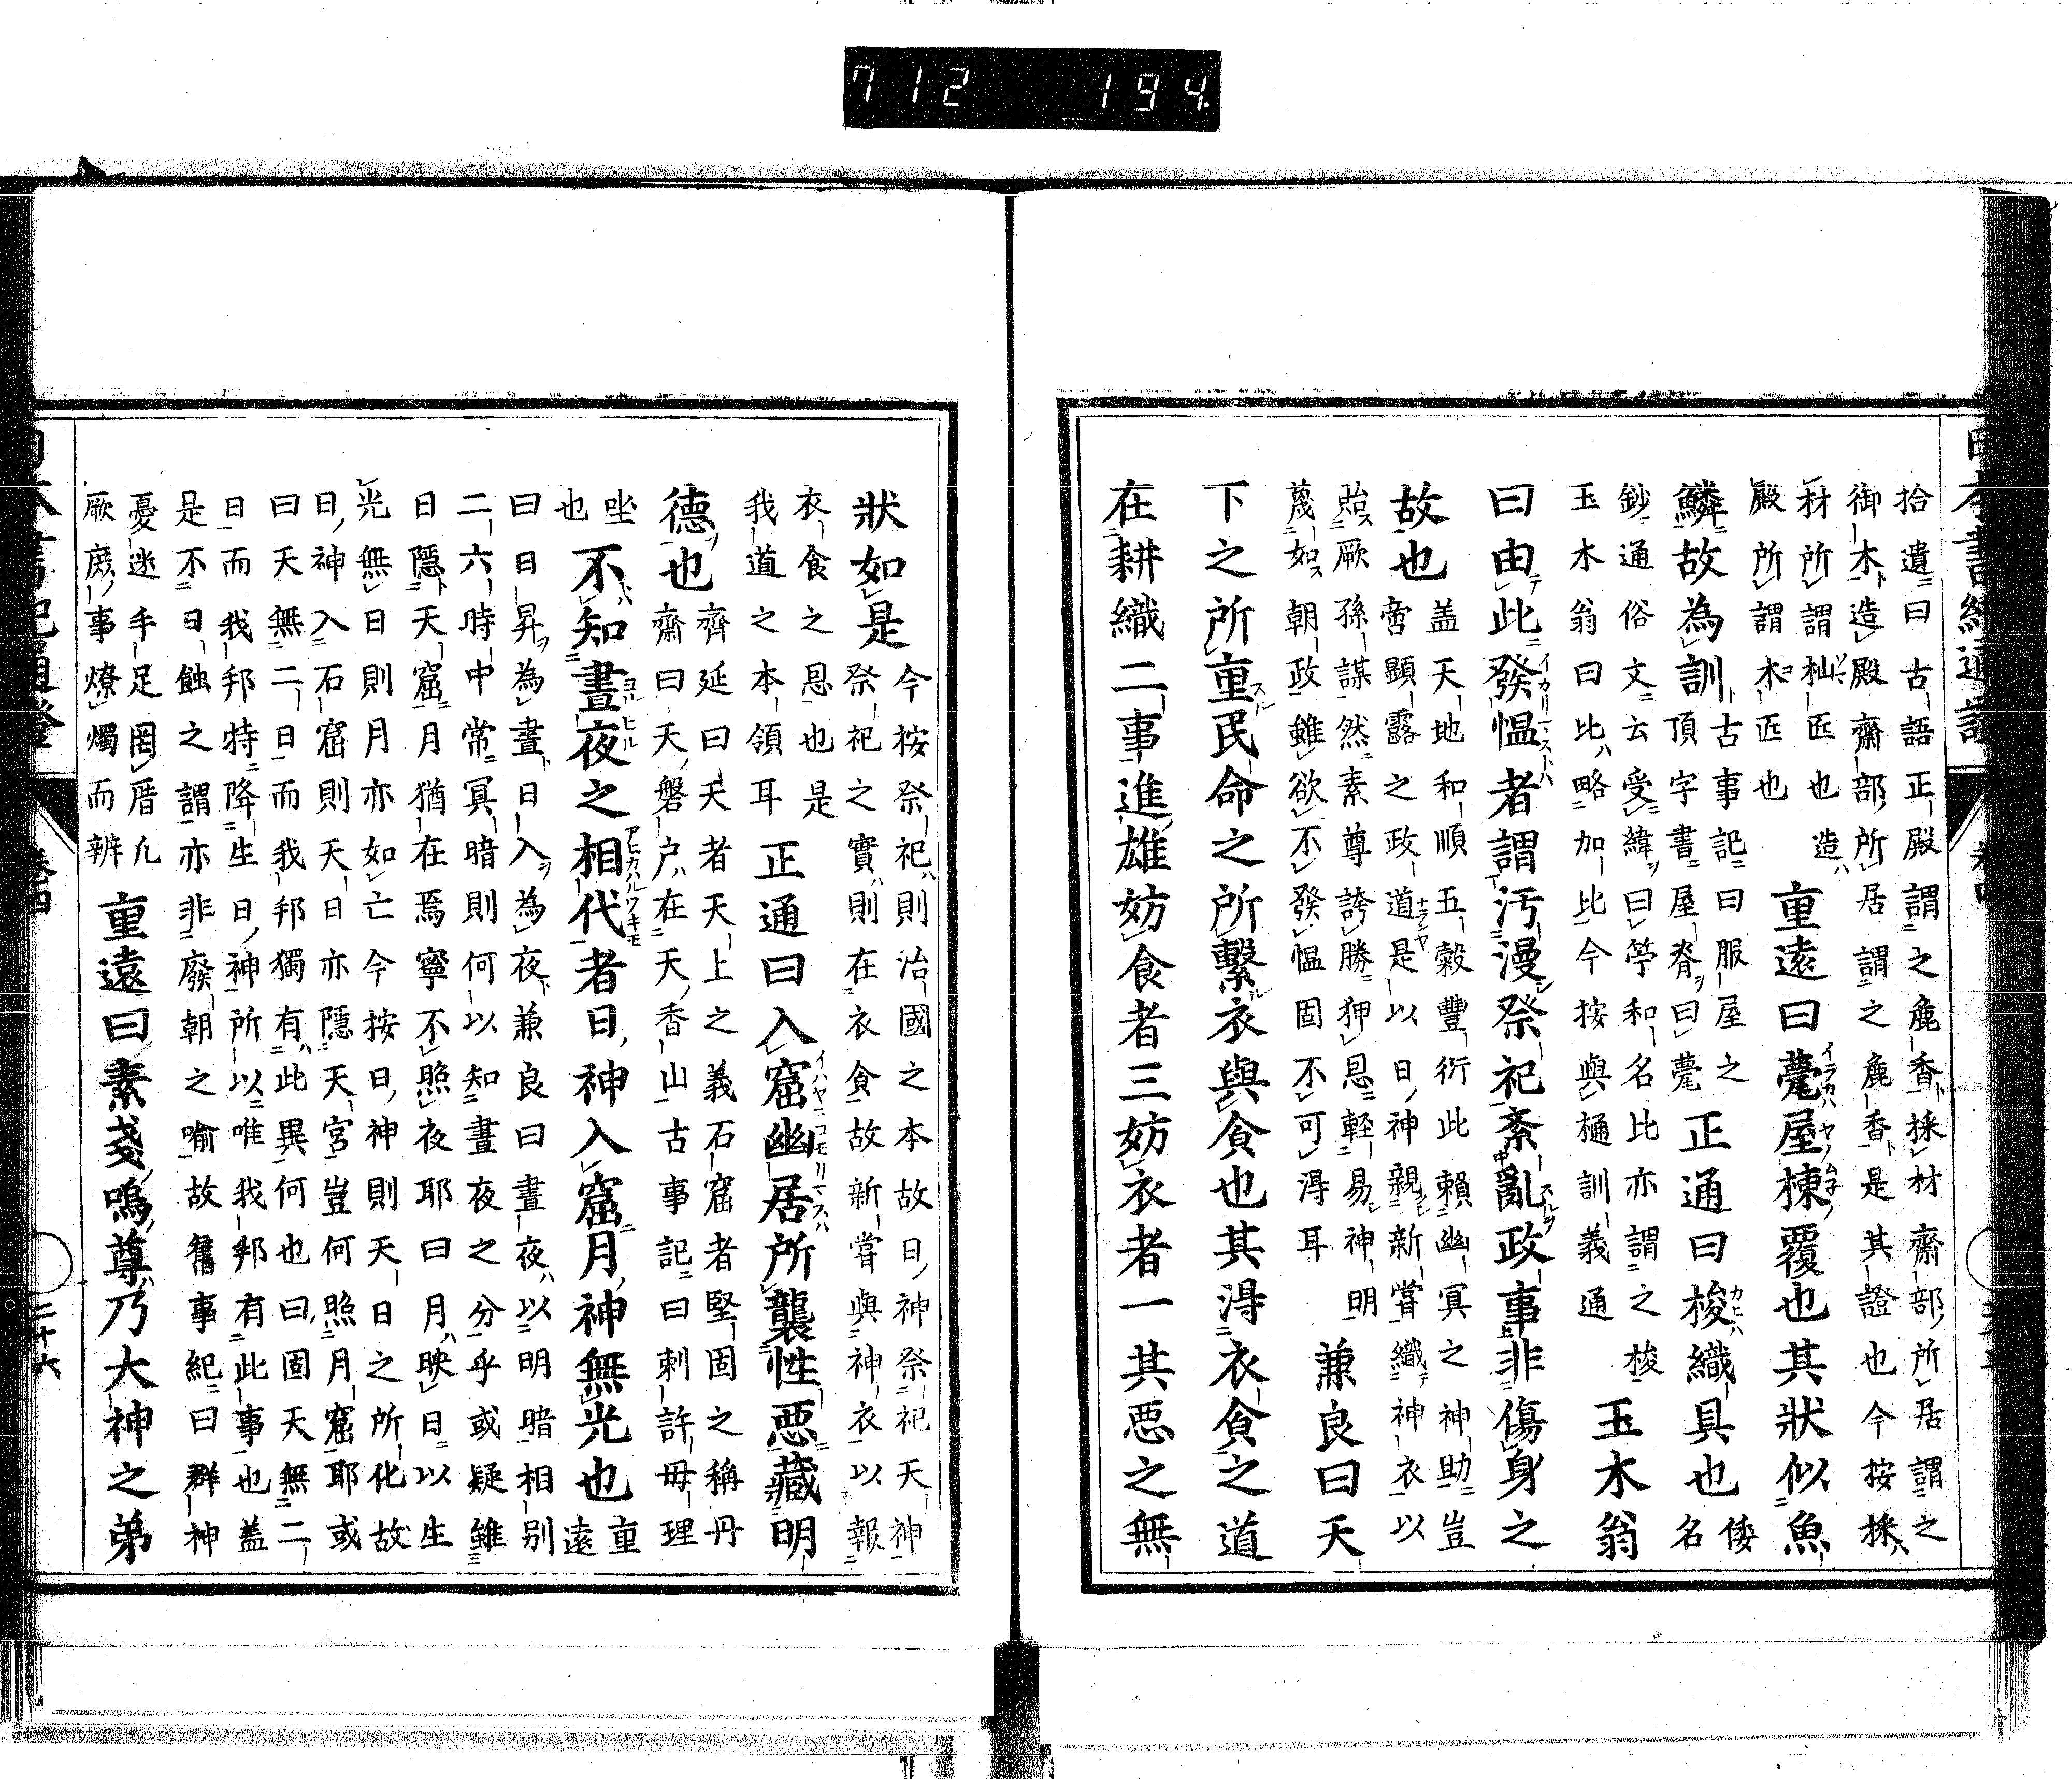 712 194
拾遺曰古語正殿謂之麁香採材齋部所居謂之
御木造殿齋部所居謂之麁香是其證也今按採
材所謂杣匠也造
殿所謂木匠也
重遠曰甍屋棟覆也其狀似魚
鱗故為訓
古事記曰服屋之
頂字書屋脊曰甍
正通曰梭織具也
倭
名
鈔通俗文云受緯曰筟和名比亦謂之梭
玉木翁曰比略加比今按與樋訓義通
玉木翁
曰由此發慍者謂汚漫祭祀紊亂政事非傷身之
故也
盖天地和順五穀豐衍此賴幽冥之神助豈
啻顯露之政道是以日神親新嘗織神衣以
貽厥孫謀然素尊誇勝狎恩輕易神明
蔑如朝政雖欲不發慍固不可得耳
兼良曰天
下之所重民命之所繫衣與食也其得衣食之道
在耕織二事進雄妨食者三妨衣者一其惡之無
狀如是
今按祭祀則治國之本故日神祭祀天神
祭祀之實則在衣食故新嘗與神衣以報
衣食之恩也是
我道之本領耳
正通曰入窟幽居所襲性惡藏明
德也
齊延曰天者天上之義石窟者堅固之稱丹
齋曰天磐戶在天香山古事記曰刺許毋理
坐
也
不知晝夜之相代者日神入窟月神無光也
重
遠
曰日昇為晝日入為夜兼良曰晝夜以明暗相別
二六時中常冥暗則何以知晝夜之分乎或疑雖
日隱天窟月猶在焉寧不照夜耶曰月映日以生
光無日則月亦如亡今按日神則天日之所化故
日神入石窟則天日亦隱天宮豈何照月窟耶或
曰天無二日而我邦獨有此異何也曰固天無二
日而我邦特降生日神所以唯我邦有此事也盖
是不日蝕之謂亦非廢朝之喻故舊事紀曰群神
憂迷手足罔厝凢
厥庶事燎燭而辨
重遠曰素戔嗚尊乃大神之弟
二十六